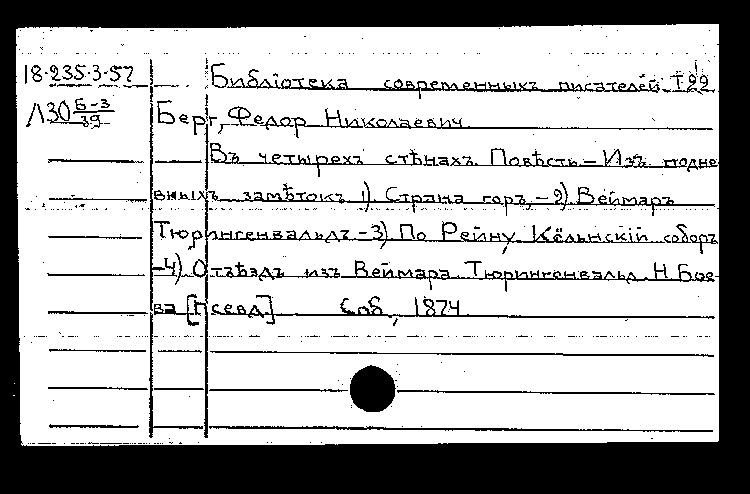 18-235-3-57 Библiотека современныхъ писателей Т 22
Л30 Б-3/39 Берг, Федор Николаевич
Въ четырехъ стѣнахъ. Повѣсть – Изъ подне-
вныхъ замѣтокъ 1) Страна горъ, – 2) Веймаръ
Тюрингенвальдъ – 3) По Рейну. Кёльнскiй соборъ
– 4) Отъѣздъ изъ Веймара. Тюрингенвальд. Н. Бое-
ва [псевд.] Спб, 1874